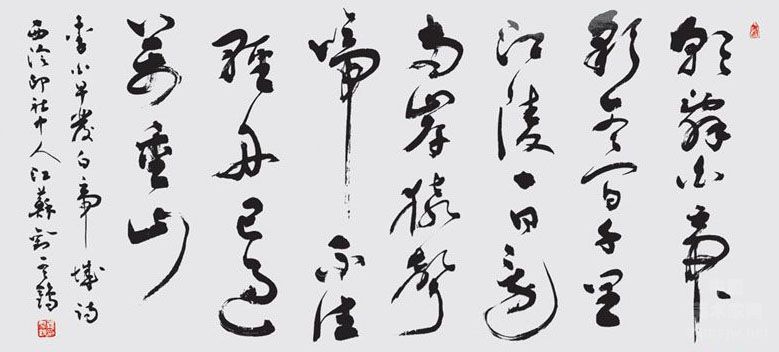 朝辭白帝
彩云間千里
江陵一日還
兩岸猿聲
啼不住
輕舟已過
萬重山
李白早發白帝城詩
西泠印社中人江蘇劉云鶴